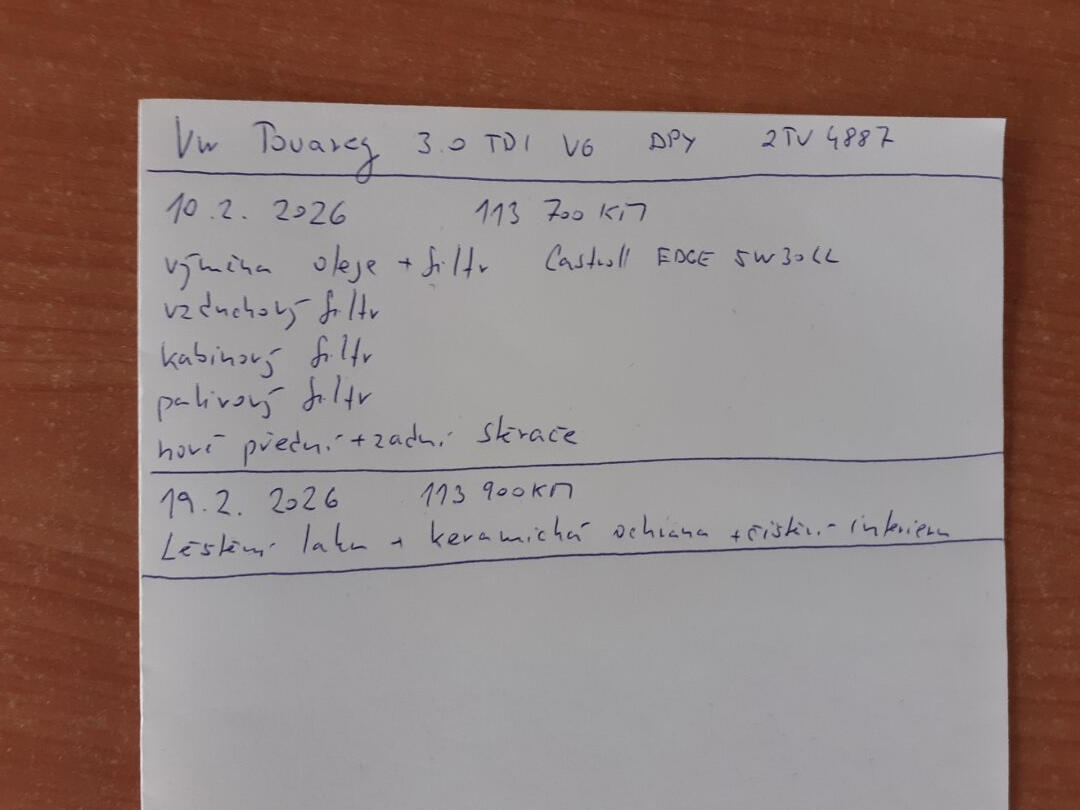 VW Touareg 3.0 TDI V6 DPY 2TV 4887
10.2. 2026 113 700 KM
výměna oleje + filtr Castroll EDGE 5W30LL
vzduchový filtr
kabinový filtr
palivový filtr
nové přední + zadní stěrače
19.2. 2026 113 900KM
Leštění laku + keramická ochrana + čištění interieru